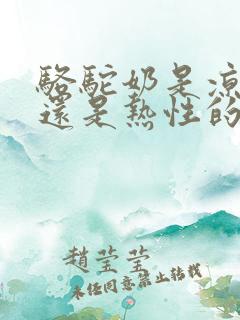 駱駝奶是涼
還是熱性的
趙瑩瑩
未任同意禁止转载